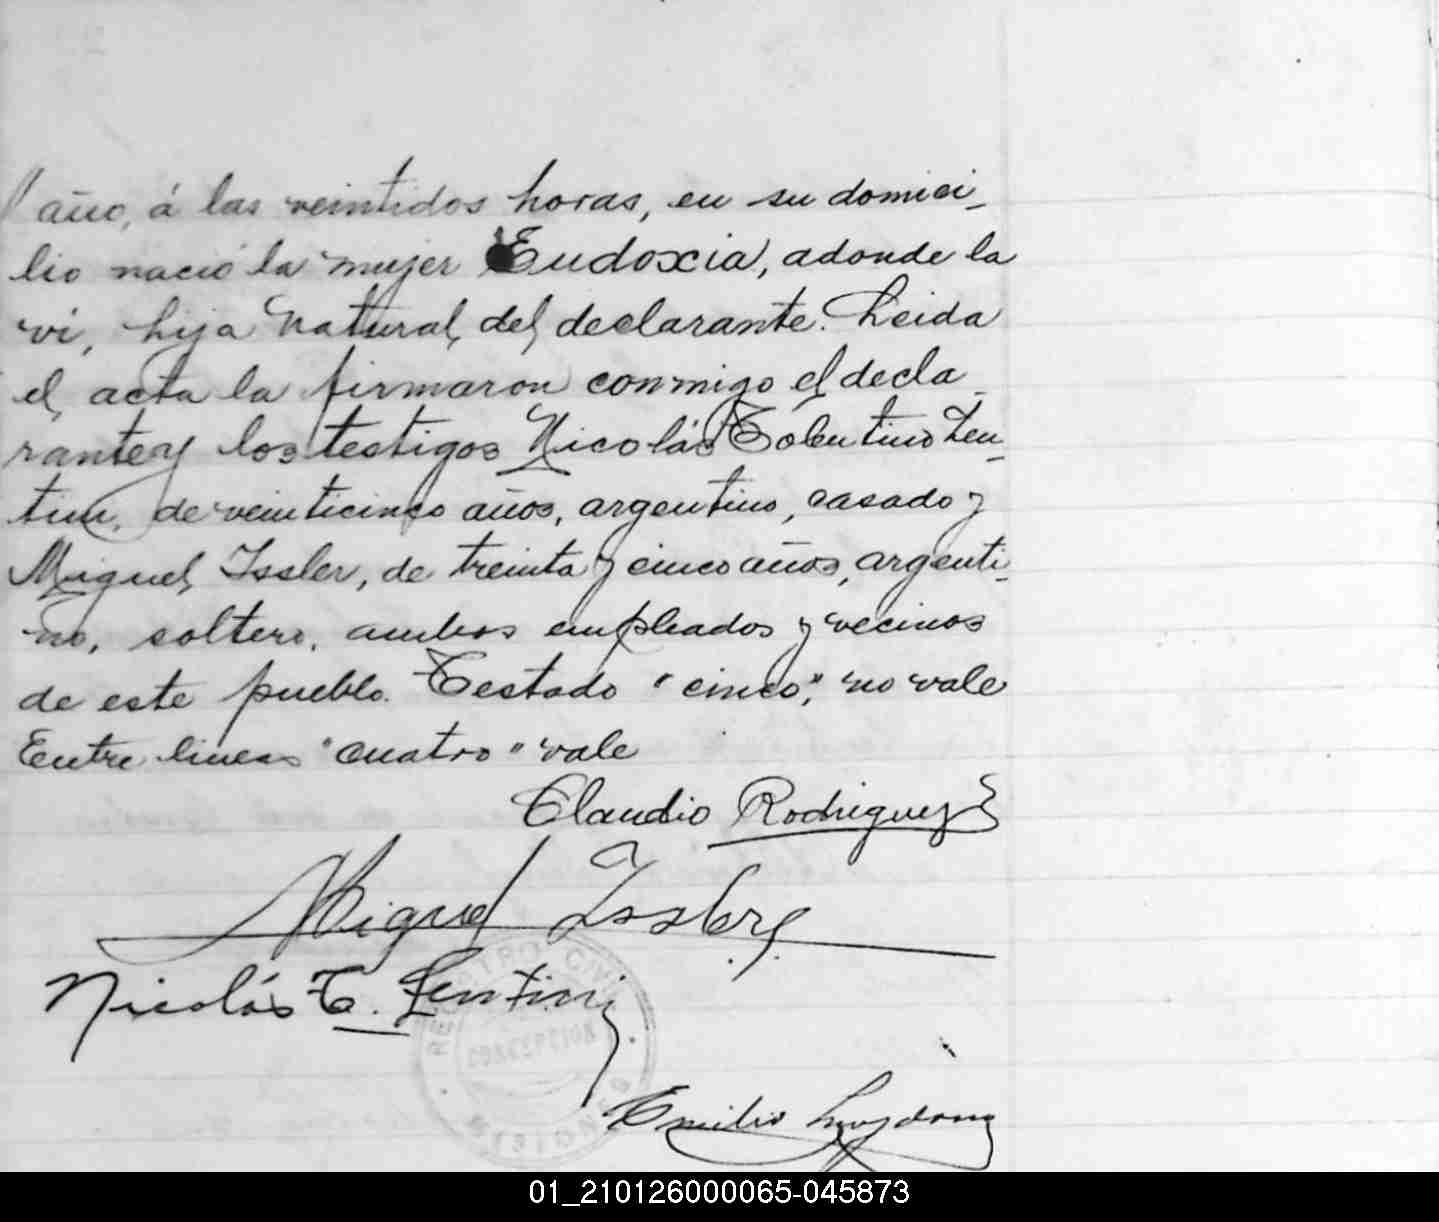 año, á las veintidos horas, en su domici-
lio nació la mujer Eudoxia, adonde la
vi, hija natural del declarante. Leida
el acta la firmaron conmigo el decla-
rante y los testigos Nicolás Tolentino Len-
tini, de veinticinco años, argentino, casado y
Miguel Issler, de treinta y cinco años, argenti-
no, soltero, ambos empleados y vecinos
de este pueblo. Testado "cinco", no vale
Entre lineas "cuatro" vale
Claudio Rodriguez
Miguel Issler
Nicolás T. Lentini
REGISTRO CIVIL
CONCEPCION
MISIONES
Emilio
01_210126000065-045873